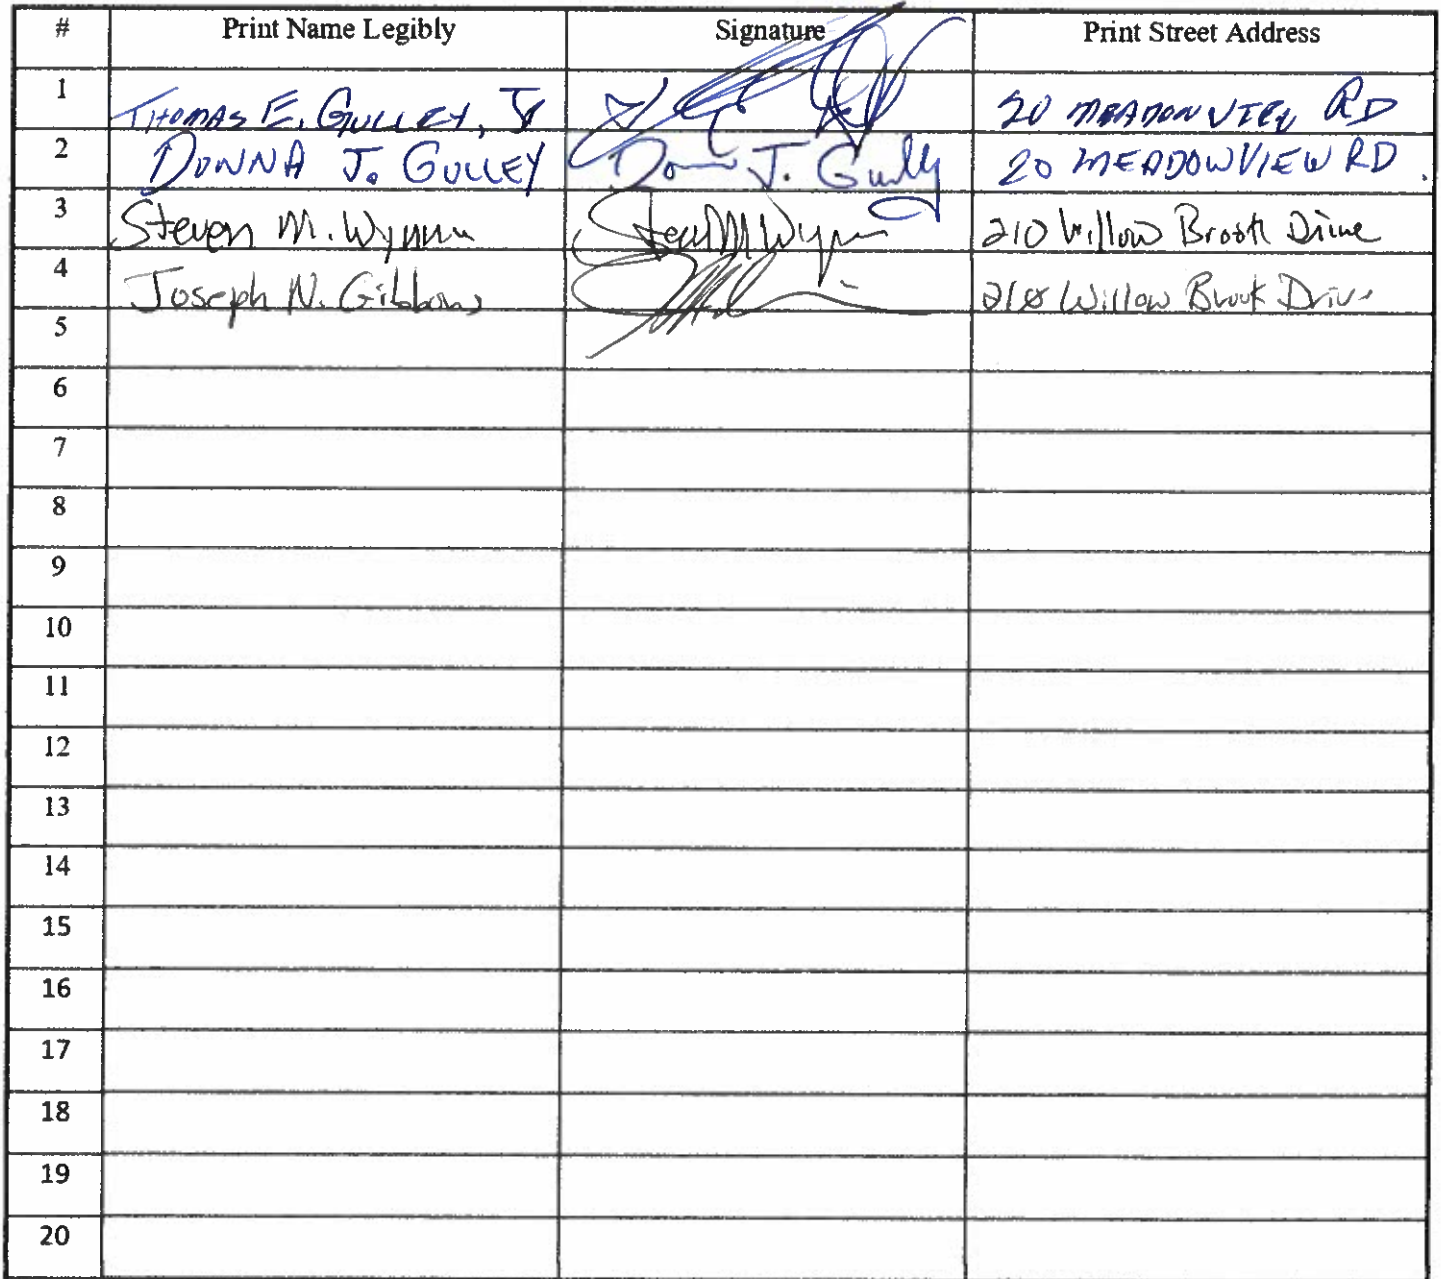 # Print Name Legibly Signature Print Street Address
1 THOMAS E. GULLEY, Jr 20 MEADOWVIEW RD
2 DONNA J. GULLEY Donna J. Gulley 20 MEADOWVIEW RD.
3 Steven M. Wynnn Steven M Wynn 210 Willow Brook Drive
4 Joseph N. Gibbons 210 Willow Brook Drive
5
6
7
8
9
10
11
12
13
14
15
16
17
18
19
20